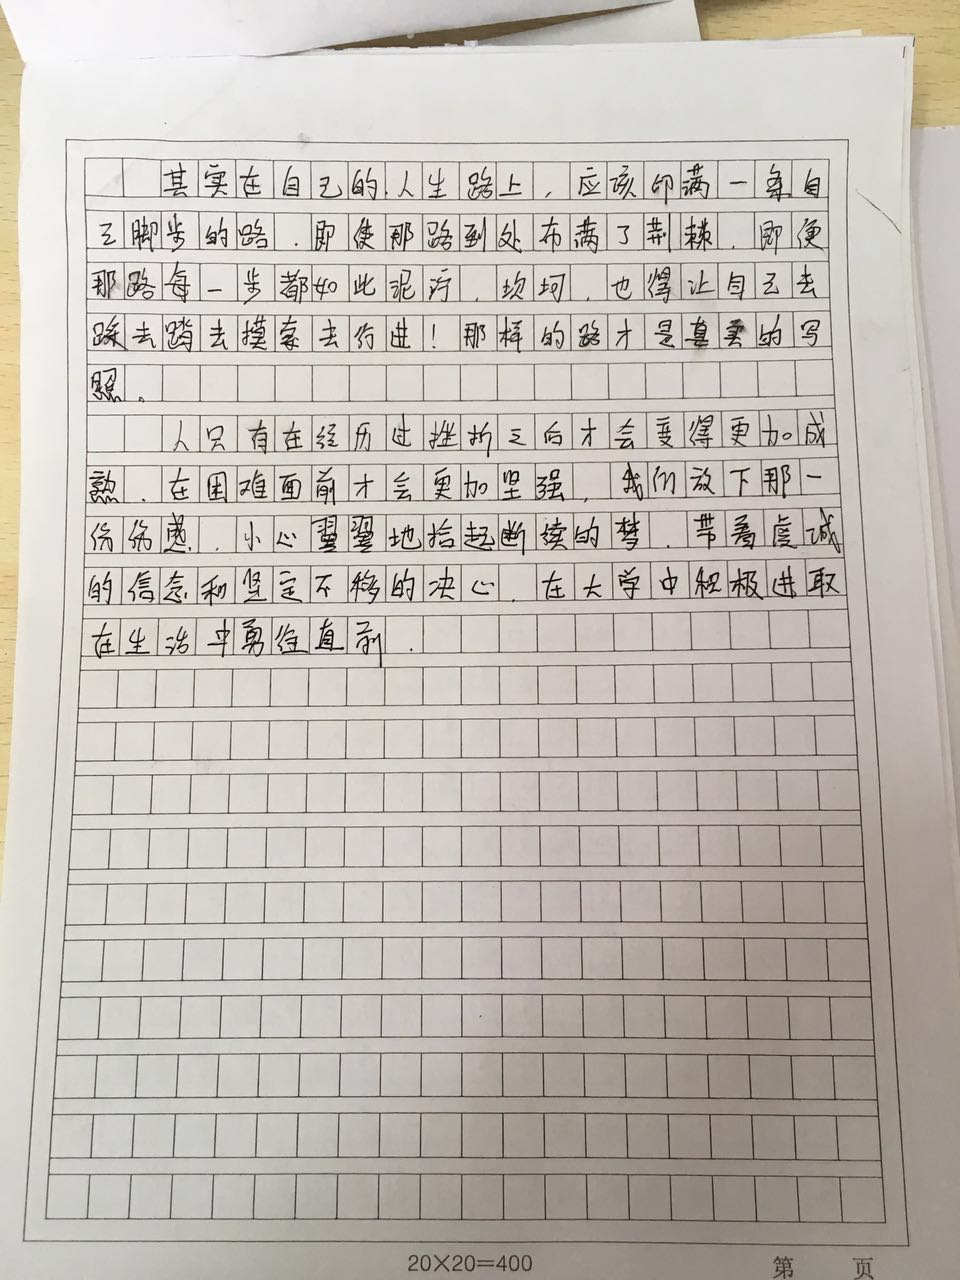 其实在自己的人生路上，应该印满一条自
己脚步的路，即使那路到处布满了荆棘，即便
那路每一步都如此泥泞，坎坷，也得让自己去
踩去踏去摸索去行进！那样的路才是真实的写
照。
人只有在经历过挫折之后才会变得更加成
熟，在困难面前才会更加坚强，我们放下那一
份伤感，小心翼翼地拾起断续的梦，带着虔诚
的信念和坚定不移的决心，在大学中积极进取
在生活中勇往直前．
20×20=400
第 页